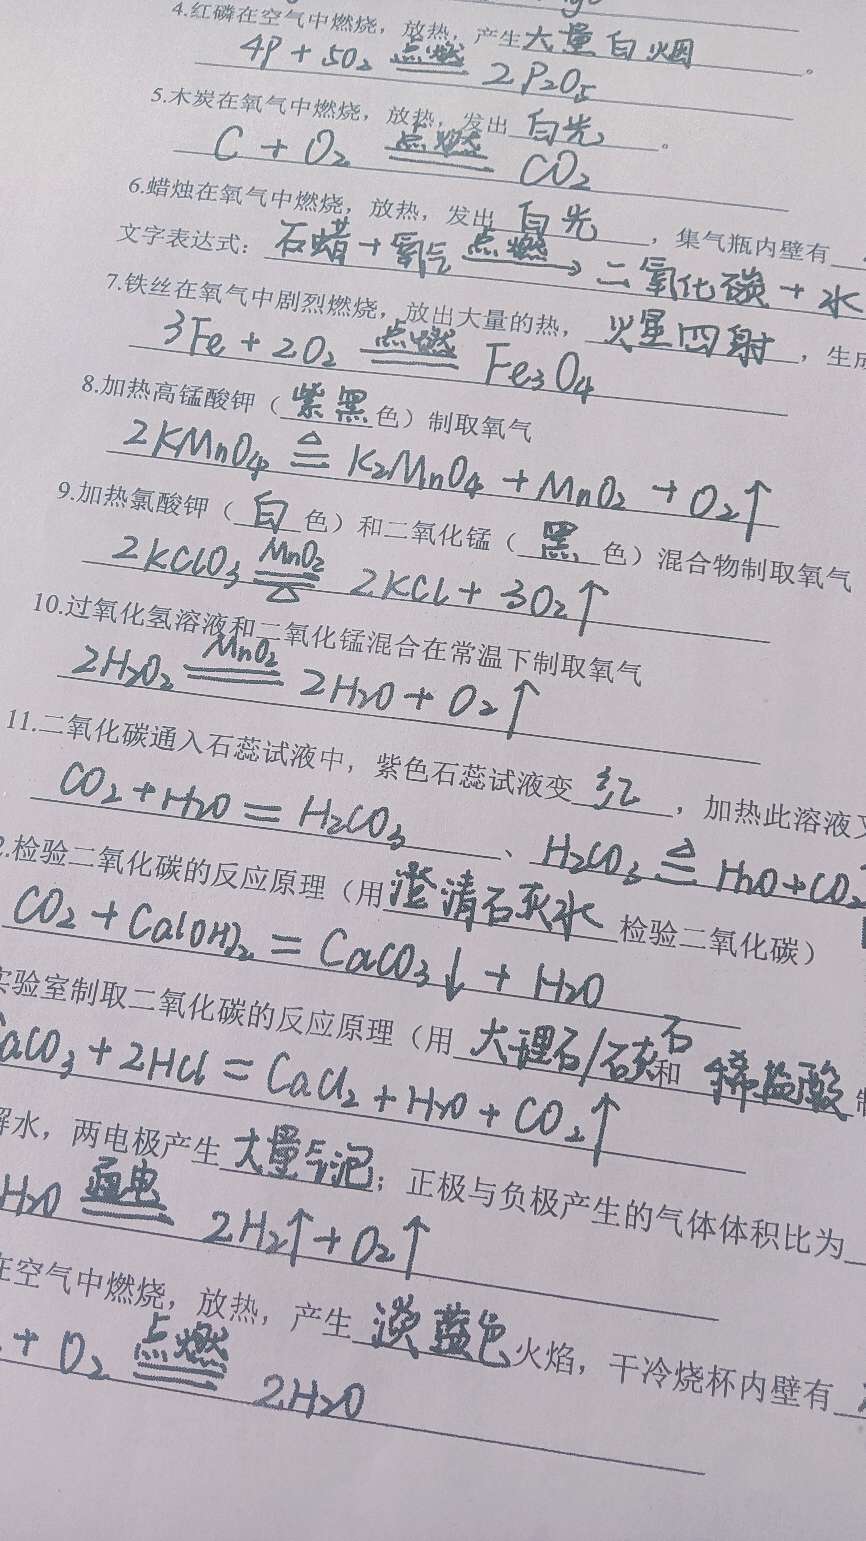 4.红磷在空气中燃烧，放热，产生大量白烟。
4P + 5O₂ 点燃 2P₂O₅
5.木炭在氧气中燃烧，放热，发出白光。
C + O₂ 点燃 CO₂
6.蜡烛在氧气中燃烧，放热，发出白光，集气瓶内壁有
文字表达式：石蜡+氧气 点燃→ 二氧化碳+水
7.铁丝在氧气中剧烈燃烧，放出大量的热，火星四射，生成
3Fe + 2O₂ 点燃 Fe₃O₄
8.加热高锰酸钾（紫黑色）制取氧气
2KMnO₄ ≜ K₂MnO₄ + MnO₂ + O₂↑
9.加热氯酸钾（白色）和二氧化锰（黑色）混合物制取氧气
2KClO₃ MnO₂ ══ △ 2KCl + 3O₂↑
10.过氧化氢溶液和二氧化锰混合在常温下制取氧气
2H₂O₂ MnO₂ ══ 2H₂O + O₂↑
11.二氧化碳通入石蕊试液中，紫色石蕊试液变红，加热此溶液又
CO₂+H₂O = H₂CO₃、H₂CO₃ ≜ H₂O+CO₂↑
2.检验二氧化碳的反应原理（用澄清石灰水检验二氧化碳）
CO₂ + Ca(OH)₂ = CaCO₃↓ + H₂O
实验室制取二氧化碳的反应原理（用大理石/石灰石和稀盐酸制
aCO₃ + 2HCl = CaCl₂ + H₂O + CO₂↑
解水，两电极产生大量气泡；正极与负极产生的气体体积比为
H₂O 通电 2H₂↑+O₂↑
在空气中燃烧，放热，产生淡蓝色火焰，干冷烧杯内壁有
+ O₂ 点燃 2H₂O